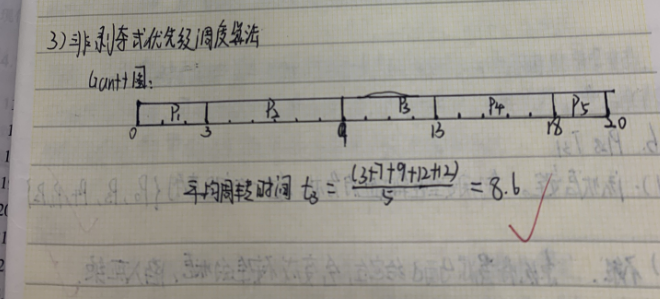 3)非剥夺式优先级调度算法
Gantt图:
P1 P2 P3 P4 P5
0 3 9 13 18 20
平均周转时间 t3 = (3+7+9+12+12)/5 = 8.6